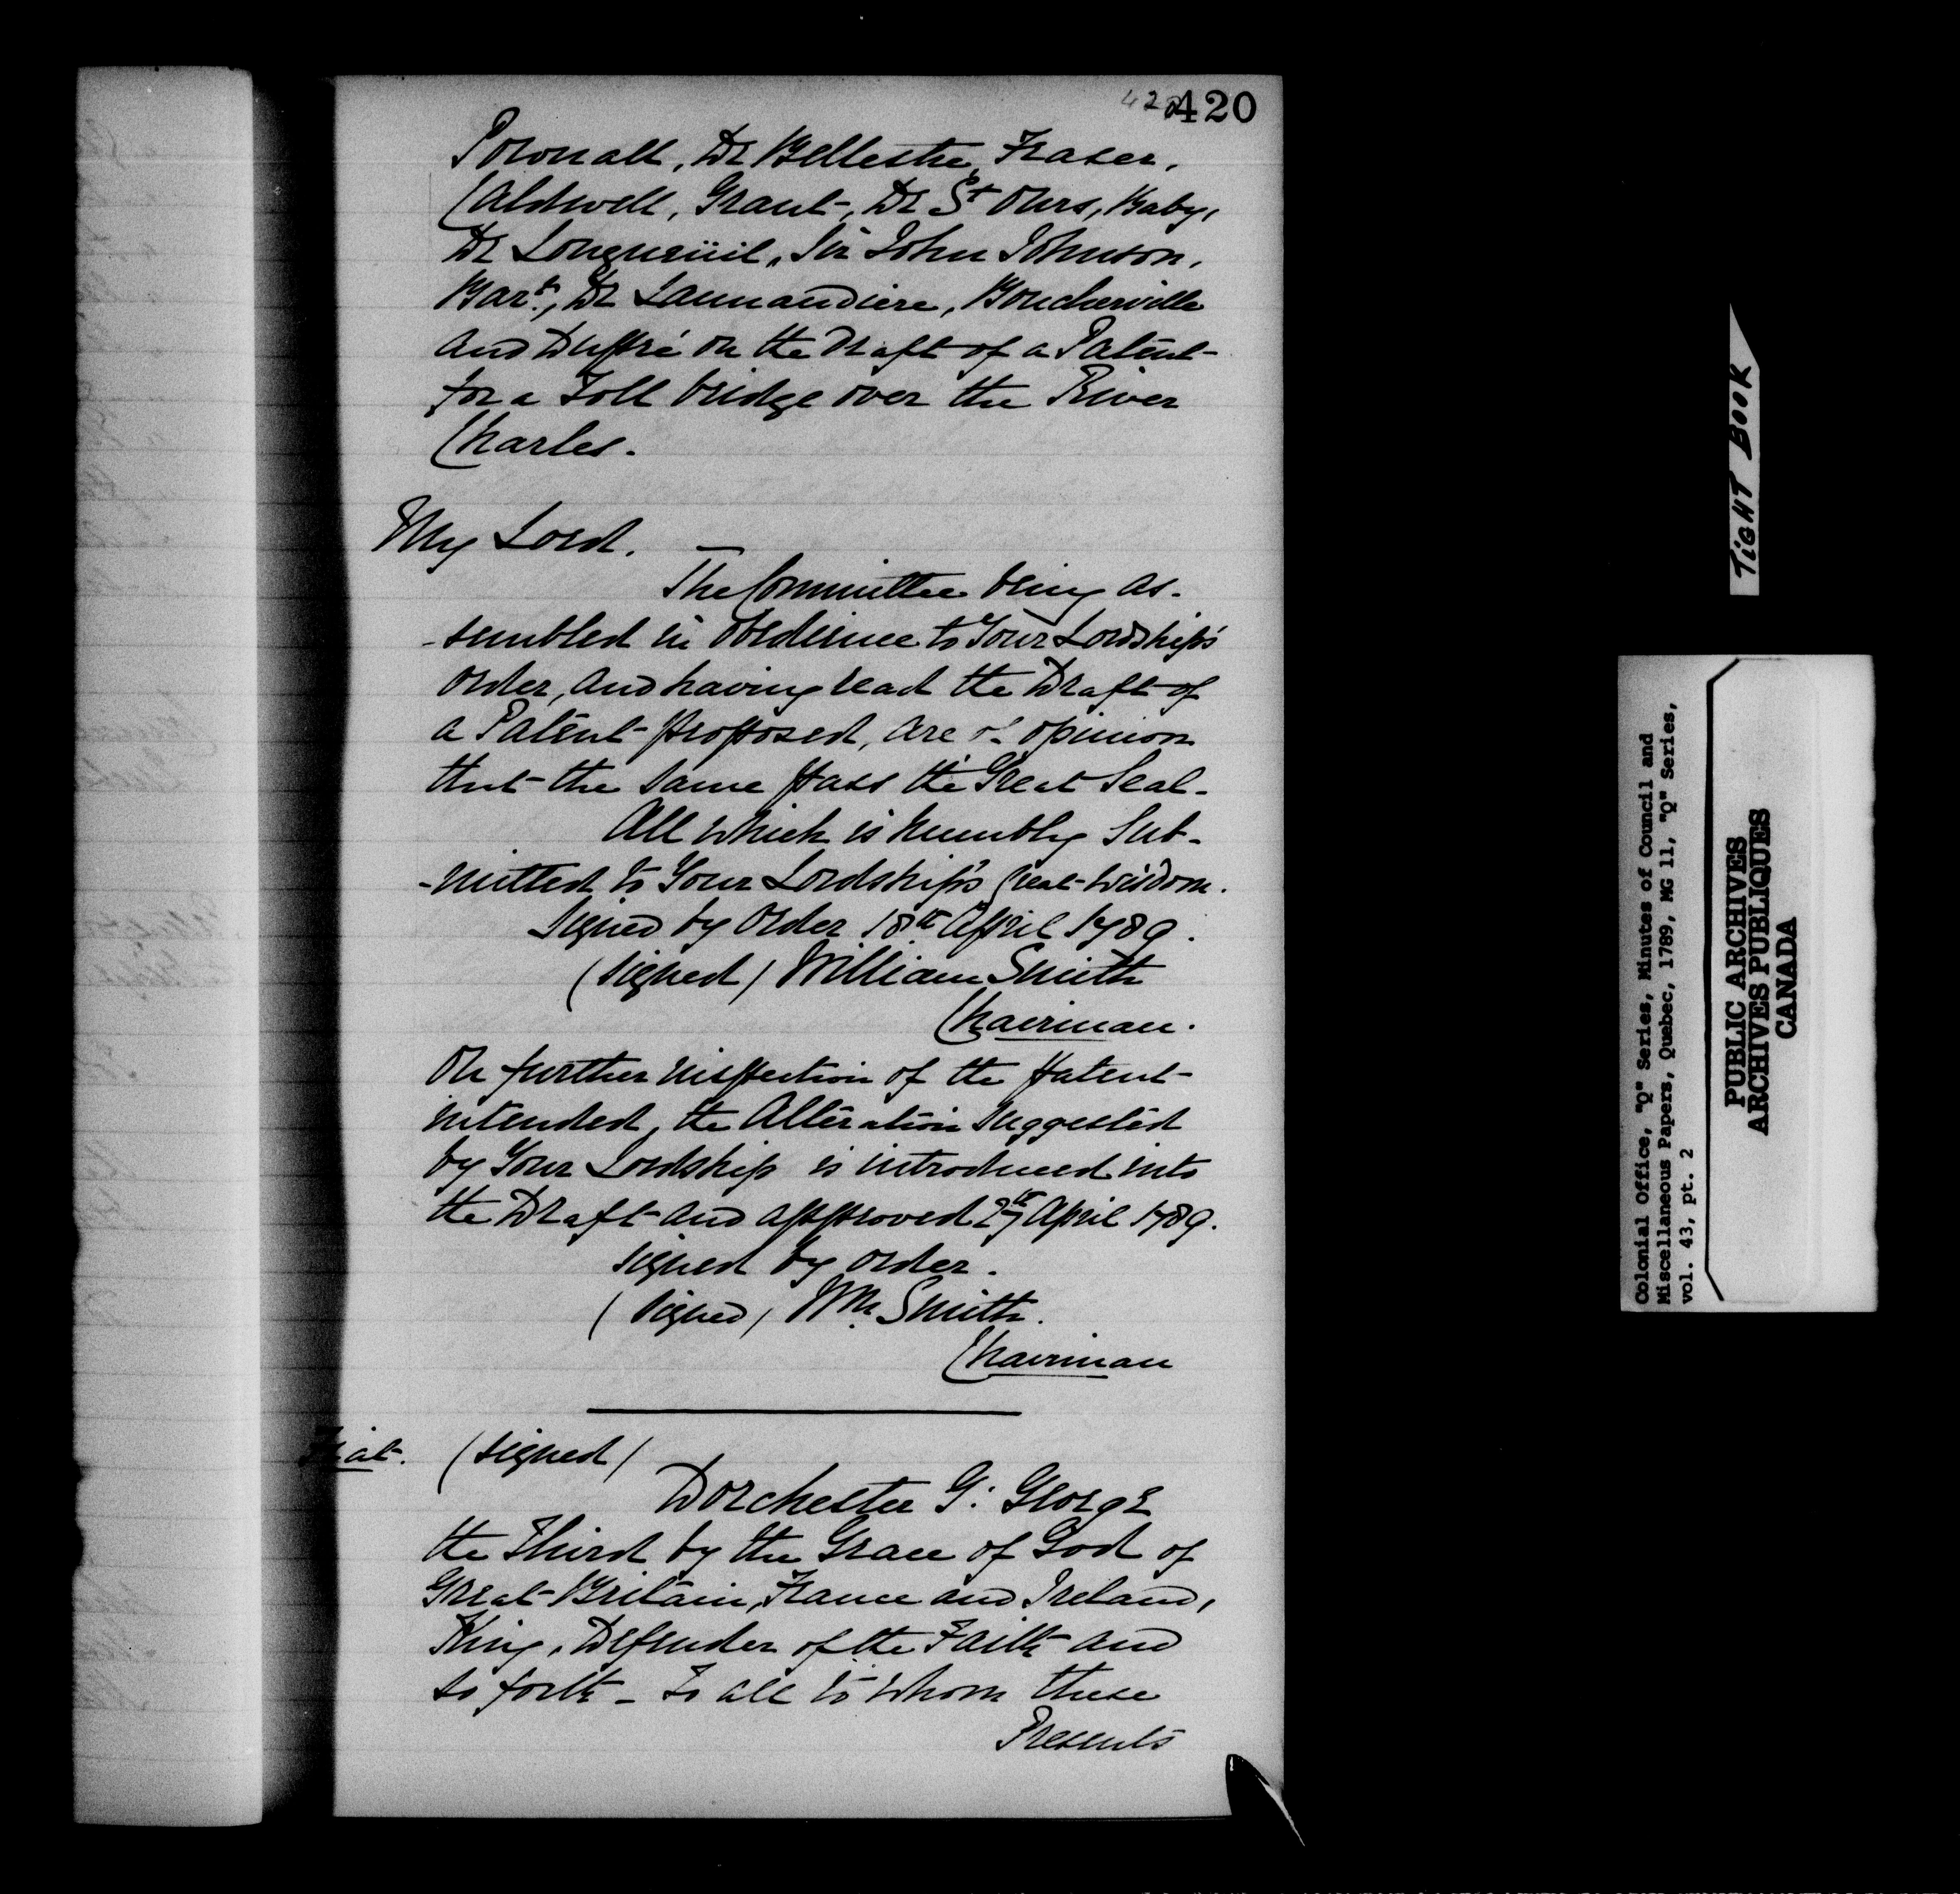 420
Pownall, De Bellestre, Fraser,
Caldwell, Grant, De St Ours, Baby,
De Longueüil, Sir John Johnson,
Bart., De Lannaudiere, Boucherville
and Duffré on the Draft of a Patent
for a Toll bridge over the River
Charles.
My Lord. —
The Committee being as-
-sembled in obedience to Your Lordship's
order, and having read the Draft of
a Patent proposed, are of opinion
that the same pass the Great Seal.
All which is humbly Sub-
-mitted to Your Lordship's Great Wisdom.
Signed by order 18th April 1789.
(signed) William Smith
Chairman.
On further inspection of the patent
intended, the Alteration suggested
by Your Lordship is introduced into
the Draft and approved 27th April 1789.
Signed by order.
(signed) Wm. Smith.
Chairman
Fiat. (signed)
Dorchester G: George
the Third by the Grace of God of
Great Britain, France and Ireland,
King, Defender of the Faith and
so forth – To all to whom these
Presents
TIGHT BOOK
Colonial Office, "Q" Series, Minutes of Council and
Miscellaneous Papers, Quebec, 1789, MG 11, "Q" Series,
vol. 43, pt. 2
PUBLIC ARCHIVES
ARCHIVES PUBLIQUES
CANADA